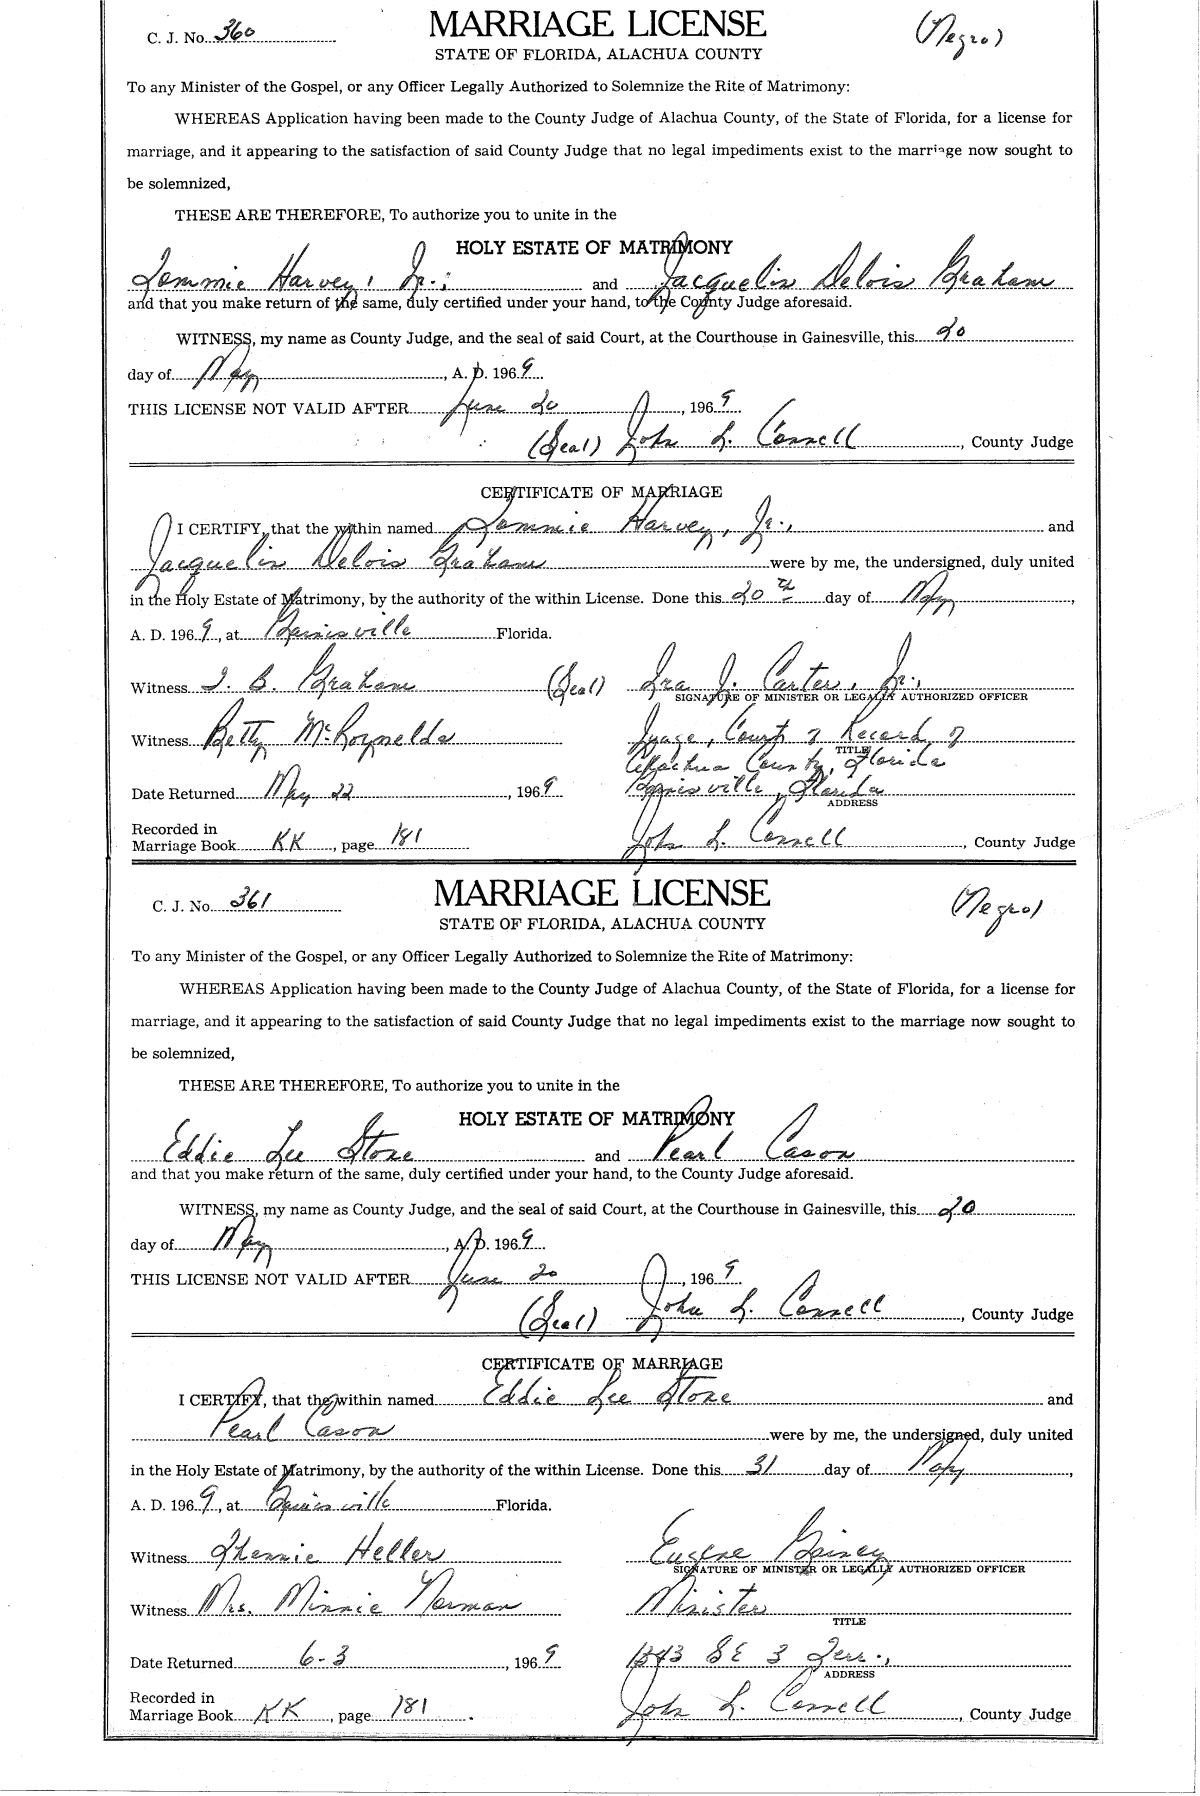 C. J. No. 360
MARRIAGE LICENSE
(Negro)
STATE OF FLORIDA, ALACHUA COUNTY
To any Minister of the Gospel, or any Officer Legally Authorized to Solemnize the Rite of Matrimony:
WHEREAS Application having been made to the County Judge of Alachua County, of the State of Florida, for a license for
marriage, and it appearing to the satisfaction of said County Judge that no legal impediments exist to the marriage now sought to
be solemnized,
THESE ARE THEREFORE, To authorize you to unite in the
HOLY ESTATE OF MATRIMONY
Harvey, Jr., and Jacquelin Delois Graham
and that you make return of the same, duly certified under your hand, to the County Judge aforesaid.
WITNESS, my name as County Judge, and the seal of said Court, at the Courthouse in Gainesville, this 20
day of May, A. D. 1969
THIS LICENSE NOT VALID AFTER June 20, 1969
(Seal) John L. Connell, County Judge
CERTIFICATE OF MARRIAGE
I CERTIFY, that the within named Harvey, Jr., and
Jacquelin Delois Graham were by me, the undersigned, duly united
in the Holy Estate of Matrimony, by the authority of the within License. Done this 20th day of May,
A. D. 1969, at Gainesville Florida.
Witness I. B. Graham (Seal) Ira J. Carter, Jr.,
SIGNATURE OF MINISTER OR LEGALLY AUTHORIZED OFFICER
Witness Betty McRoynelds Judge, Court of Record of
TITLE
Alachua County, Florida
Date Returned May 22, 1969 Gainesville, Florida
ADDRESS
Recorded in
Marriage Book KK, page 181 John L. Connell, County Judge
C. J. No. 361
MARRIAGE LICENSE
(Negro)
STATE OF FLORIDA, ALACHUA COUNTY
To any Minister of the Gospel, or any Officer Legally Authorized to Solemnize the Rite of Matrimony:
WHEREAS Application having been made to the County Judge of Alachua County, of the State of Florida, for a license for
marriage, and it appearing to the satisfaction of said County Judge that no legal impediments exist to the marriage now sought to
be solemnized,
THESE ARE THEREFORE, To authorize you to unite in the
HOLY ESTATE OF MATRIMONY
Eddie Lee Stone and Pearl Cason
and that you make return of the same, duly certified under your hand, to the County Judge aforesaid.
WITNESS, my name as County Judge, and the seal of said Court, at the Courthouse in Gainesville, this 20
day of May, A. D. 1969
THIS LICENSE NOT VALID AFTER June 20, 1969
(Seal) John L. Connell, County Judge
CERTIFICATE OF MARRIAGE
I CERTIFY, that the within named Eddie Lee Stone and
Pearl Cason were by me, the undersigned, duly united
in the Holy Estate of Matrimony, by the authority of the within License. Done this 31 day of May,
A. D. 1969, at Gainesville Florida.
Witness Heller Eugene Gainey
SIGNATURE OF MINISTER OR LEGALLY AUTHORIZED OFFICER
Witness Mrs. Minnie Norman Minister
TITLE
Date Returned 6-3, 1969 1343 SE 3 Terr.,
ADDRESS
Recorded in
Marriage Book KK, page 181. John L. Connell, County Judge